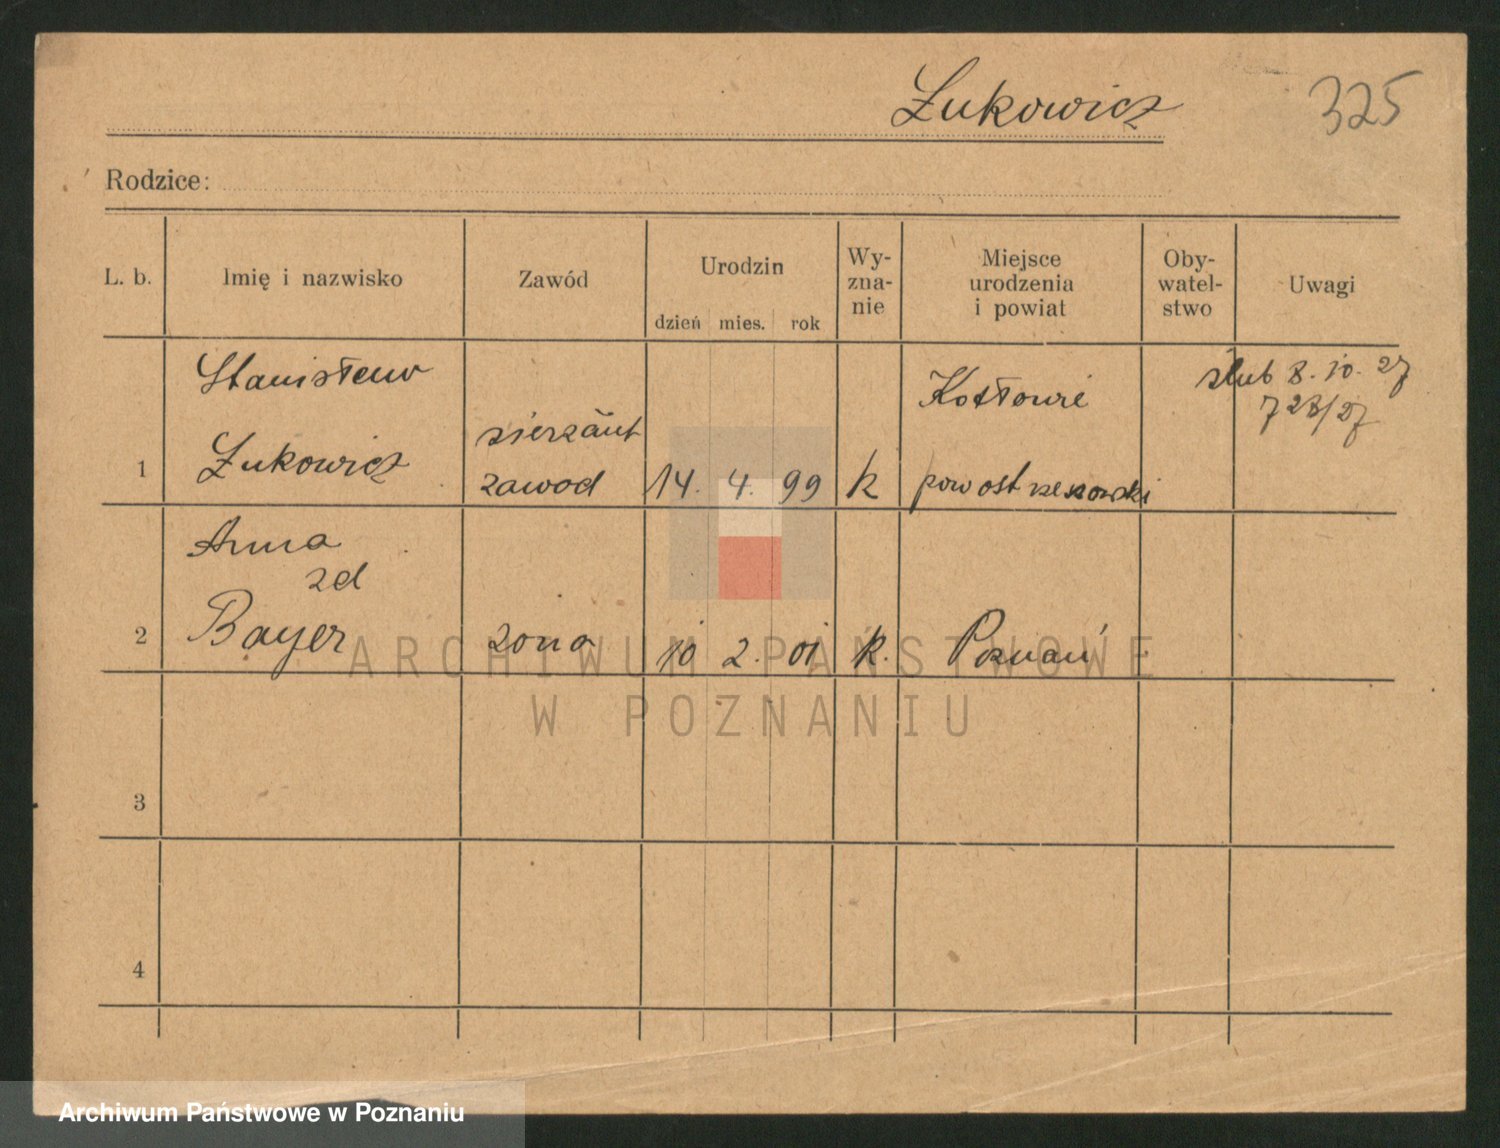 Żukowicz
325
Rodzice:
L. b.
Imię i nazwisko
Zawód
Urodzin
dzień mies. rok
Wy-
zna-
nie
Miejsce
urodzenia
i powiat
Oby-
watel-
stwo
Uwagi
1
Stanisław
Żukowicz
sierżant
zawod
14. 4. 99
k
powostrzeszowski
ślub 8. 10. 27
728/27
2
Anna
zd
Bayer
żona
10 2. 01
k.
Poznań
3
4
ARCHIWUM PAŃSTWOWE
W POZNANIU
Archiwum Państwowe w Poznaniu